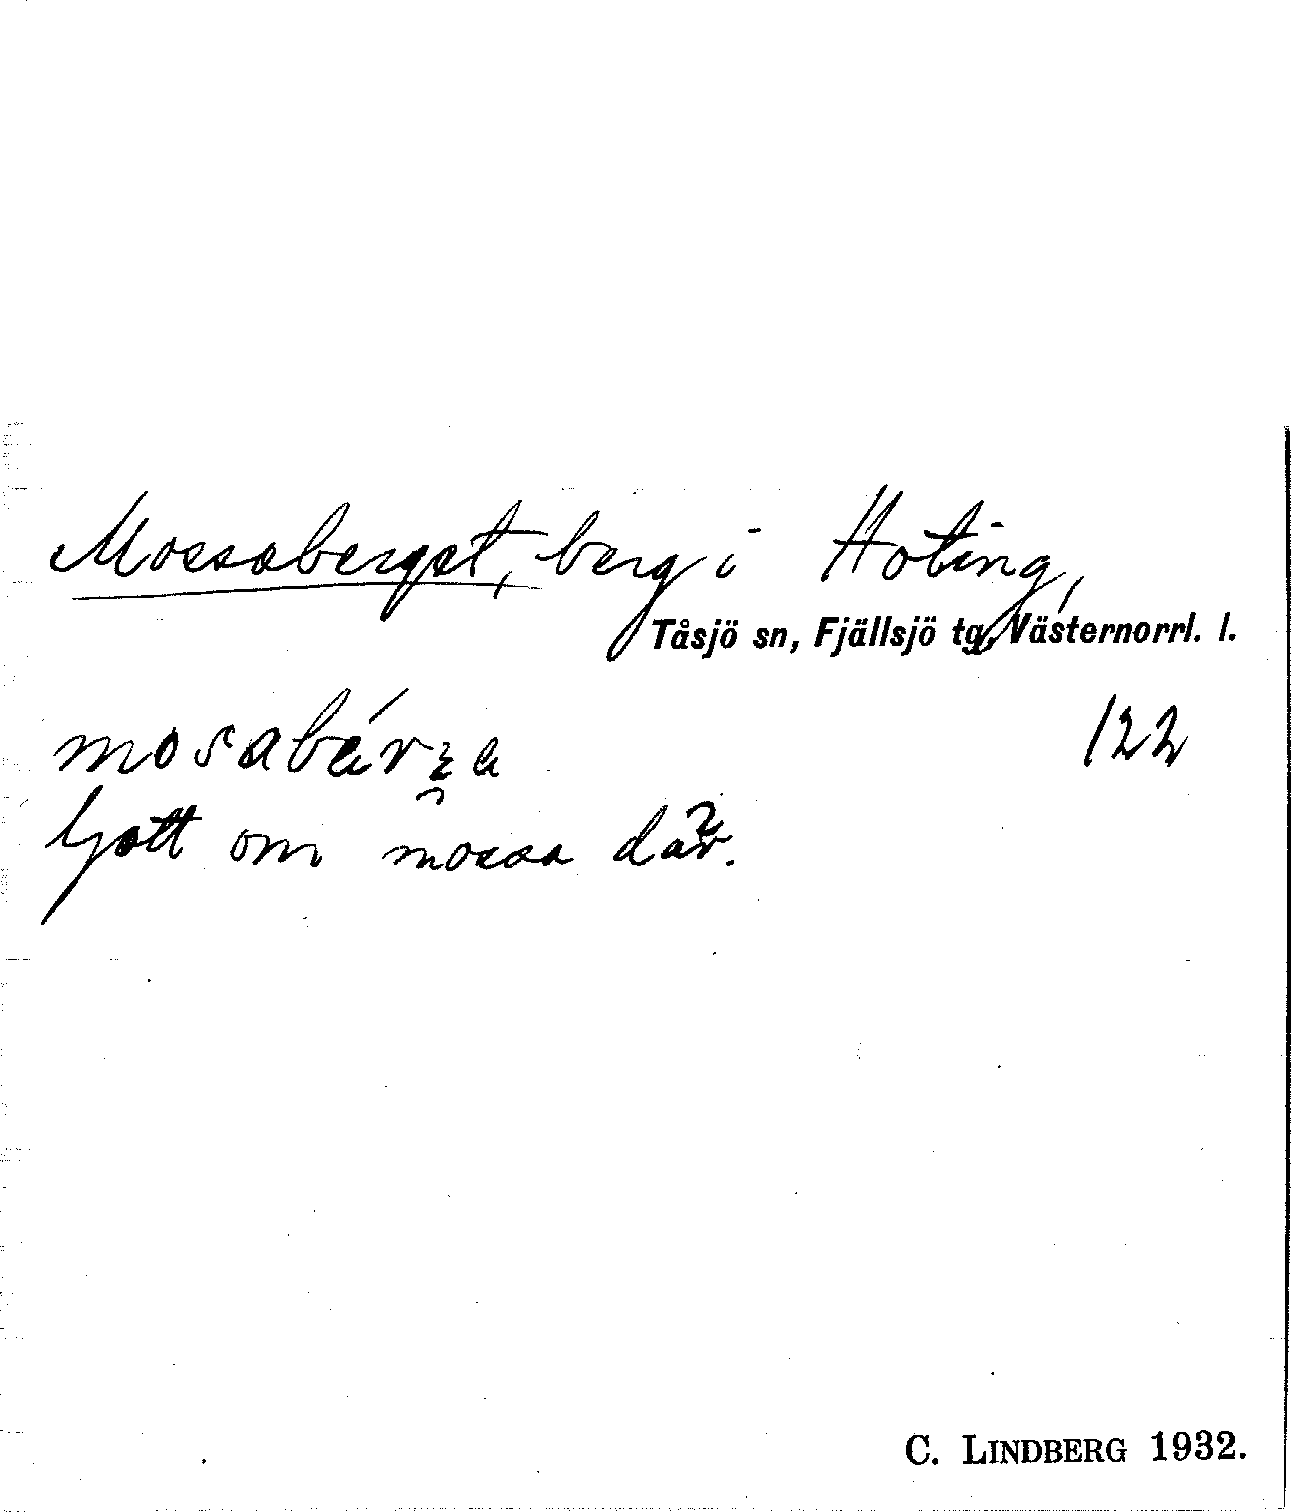 Mossaberget, berg i Hoting,
Tåsjö sn, Fjällsjö tg, Västernorrl. l.
122
Gott om mossa där.
C. LINDBERG 1932.